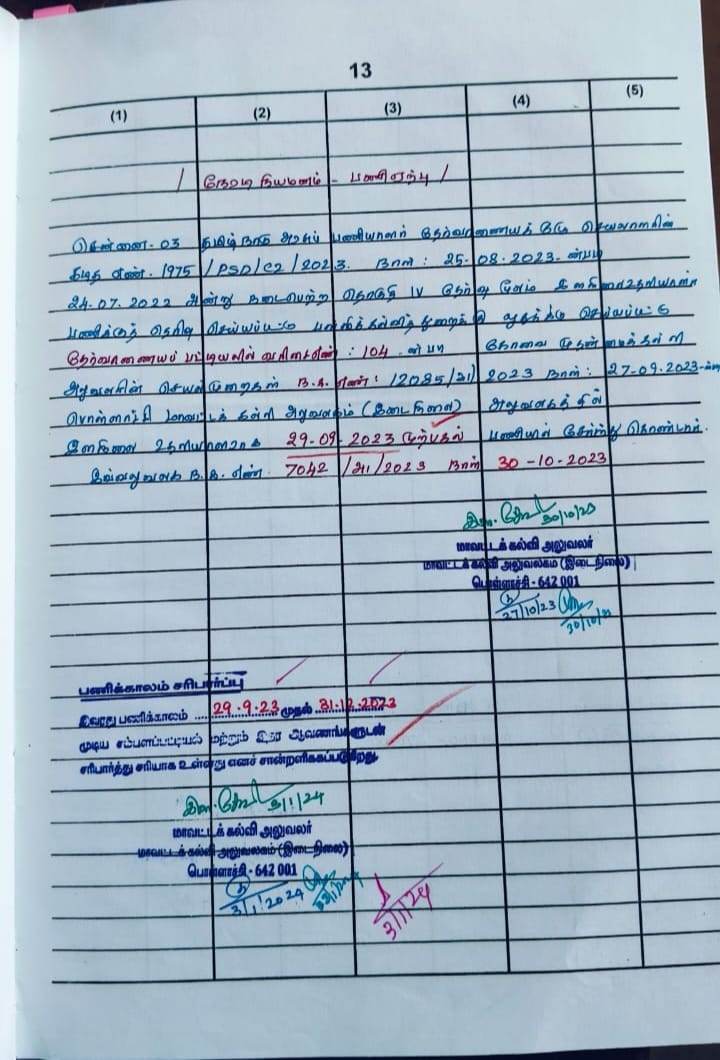 13
(1) (2) (3) (4) (5)
/ நேரடி நியமனம் - பணிஏற்பு /
சென்னை-03 தமிழ்நாடு அரசுப் பணியாளர் தேர்வாணையக் குழு செயலாளரின்
கடித எண். 1975 /PSD/C2/2023. நாள் : 25-08-2023-ன்படி
24.07.2022 அன்று நடைபெற்ற தொகுதி IV தேர்வு மூலம் இளநிலை உதவியாளர்
பணிக்குத் தெரிவு செய்யப்பட்டு பள்ளிக்கல்வித் துறைக்கு ஒதுக்கீடு செய்யப்பட்டு
தேர்வாணையப் பட்டியலின் வரிசைஎண் : 104 -ன்படி கோவை முதன்மைக்கல்வி
அலுவலரின் செயல்முறைகள் ந.க.எண்: 12085/அ1/ 2023 நாள்: 27-09-2023-ன்படி
பொள்ளாச்சி மாவட்டக் கல்வி அலுவலகம் (இடைநிலை) அலுவலகத்தில்
இளநிலை உதவியாளராக 29-09-2023 முற்பகல் பணியில் சேர்ந்து கொண்டார்.
இவ்வலுவலக ந.க.எண். 7042 /அ1/2023 நாள் 30-10-2023
30/10/23
மாவட்டக் கல்வி அலுவலர்
மாவட்டக் கல்வி அலுவலகம் (இடைநிலை)
பொள்ளாச்சி - 642 001
27/10/23
30/10/23
பணிக்காலம் சரிபார்ப்பு
இவரது பணிக்காலம் ....29.9.23 முதல் 31.12.2023
முடிய சம்பளப்பட்டியல் மற்றும் இதர ஆவணங்களுடன்
சரிபார்த்து சரியாக உள்ளது எனச் சான்றளிக்கப்படுகிறது.
3/1/24
மாவட்டக் கல்வி அலுவலர்
மாவட்டக் கல்வி அலுவலகம் (இடைநிலை)
பொள்ளாச்சி - 642 001
3/1/2024
3/1/24